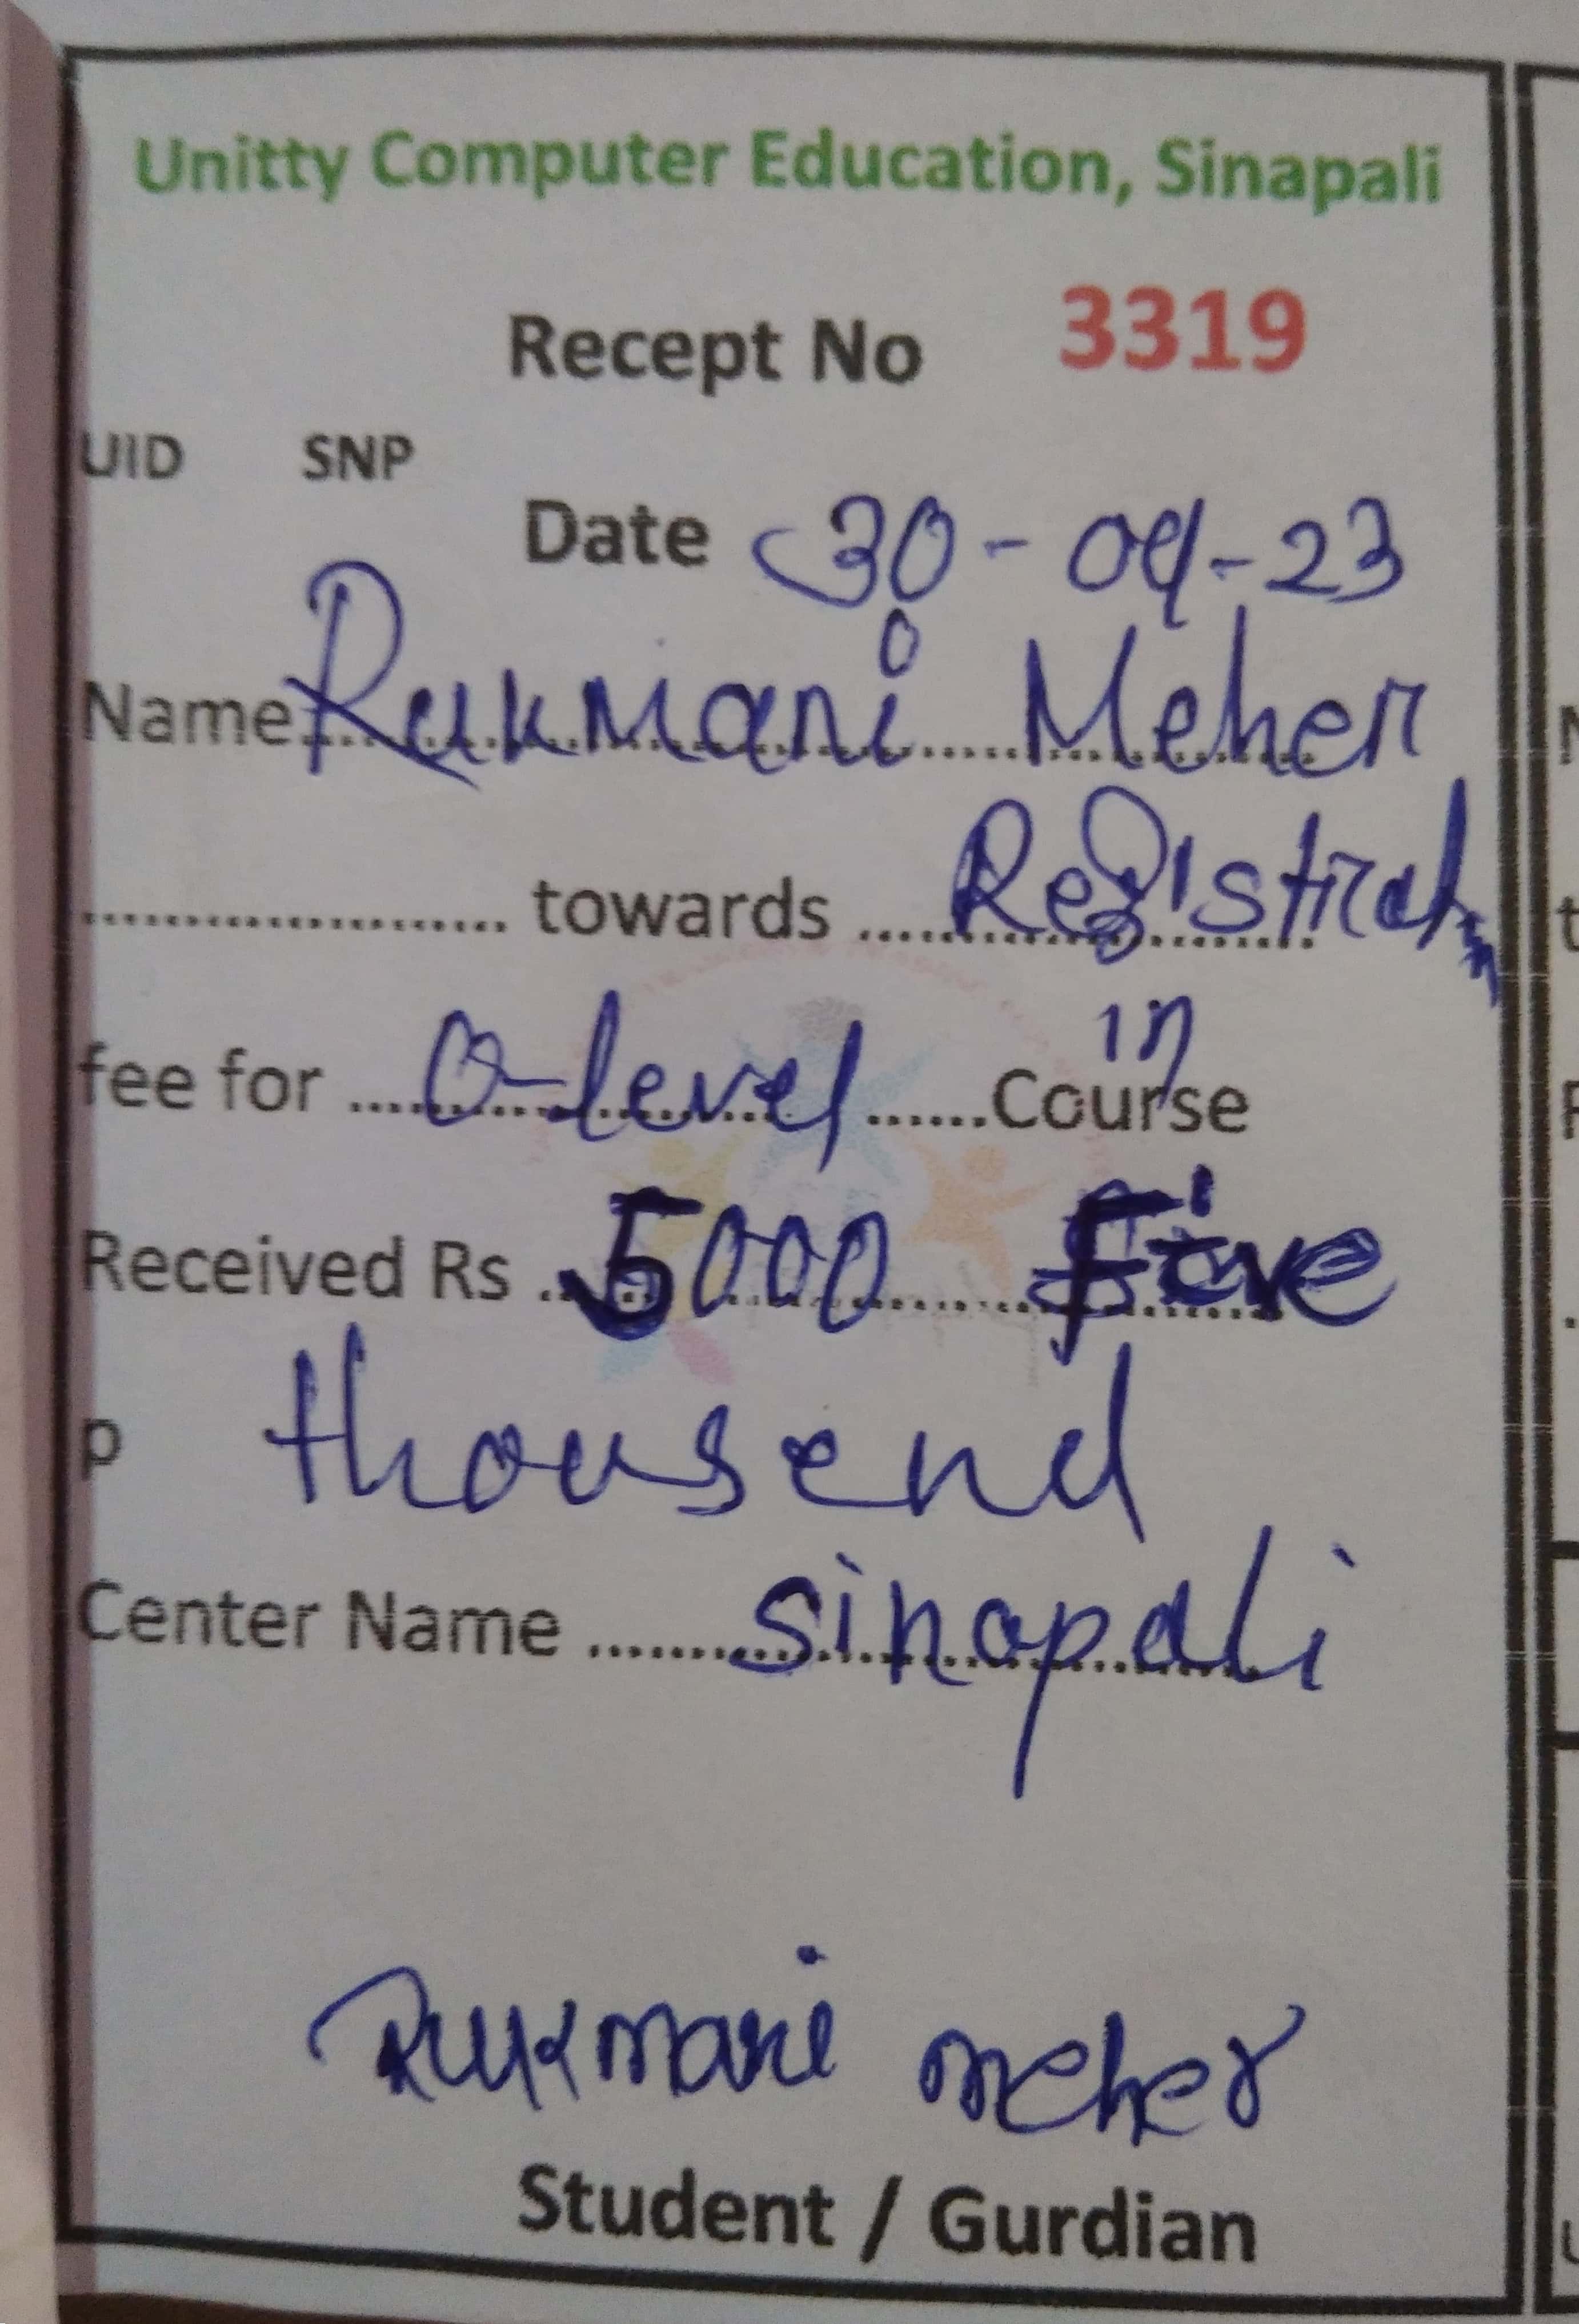 Unitty Computer Education, Sinapali
Recept No 3319
UID SNP
Date 30-09-23
Name Rukmani Meher
.................... towards ..... Registrat
in
fee for ..... O-level ......Course
Received Rs ..5000 Five
p thousend
Center Name ........ sinapali
Rukmani meher
Student / Gurdian